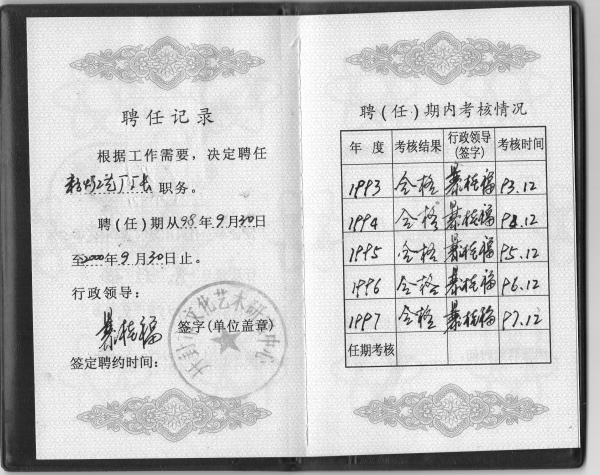 聘任记录
根据工作需要，决定聘任
厂长 职务。
聘(任)期从98年9月30日
至2000年9月30日止。
行政领导：
签字(单位盖章)
签定聘约时间：
文化艺术 中心
聘(任)期内考核情况
年度 考核结果 行政领导(签字) 考核时间
1993 合格 93.12
1994 合格 94.12
1995 合格 95.12
1996 合格 96.12
1997 合格 97.12
任期考核